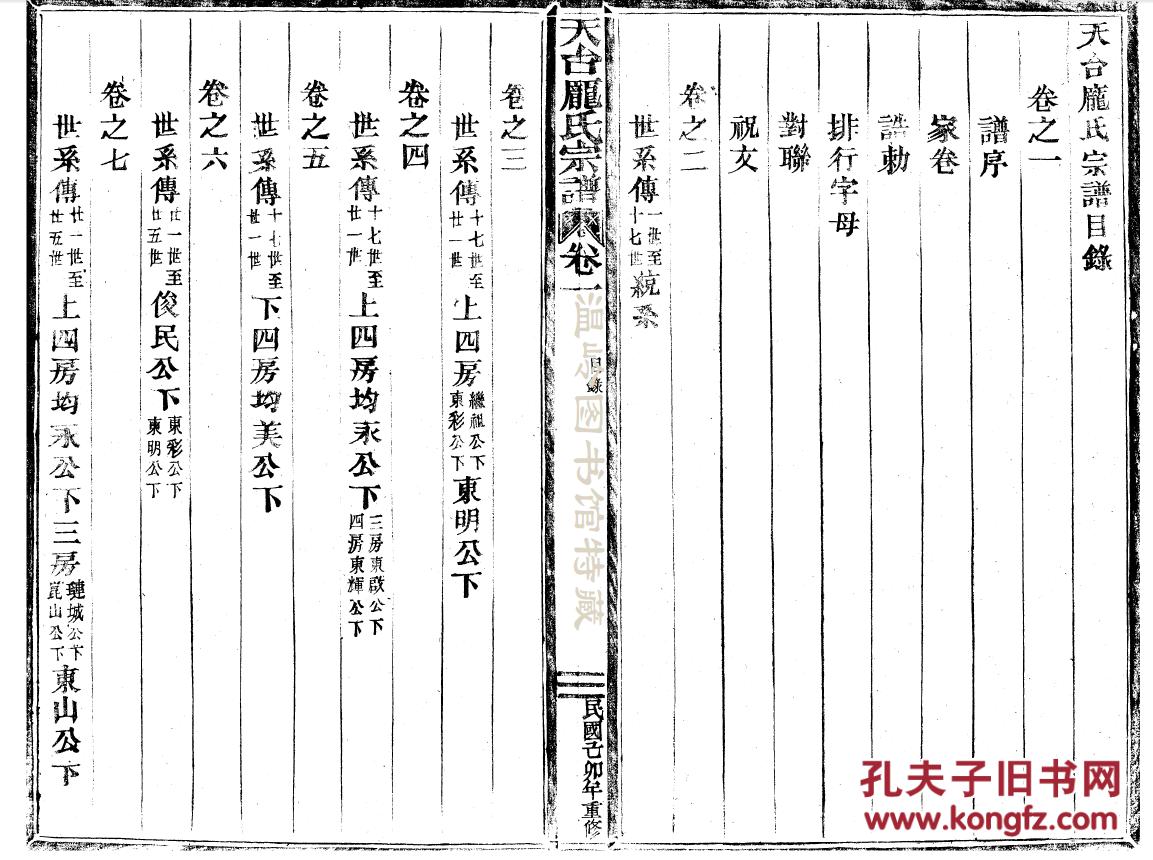 天台龐氏宗譜目錄
卷之一
譜序
家卷
誥勅
排行字母
對聯
祝文
卷之二
世系傳一世至十七世統系
天台龐氏宗譜卷一
目錄
民國己卯年重修
卷之三
世系傳十七世至廿一世上四房繼祖公下東彩公下東明公下
卷之四
世系傳十七世至廿一世上四房均永公下三房東啟公下四房東輝公下
卷之五
世系傳十七世至廿一世下四房均美公下
卷之六
世系傳廿一世至廿五世俊民公下東彩公下東明公下
卷之七
世系傳廿一世至廿五世上四房均永公下三房璉城公下崑山公下東山公下
温岭图书馆特藏
孔夫子旧书网
www.kongfz.com